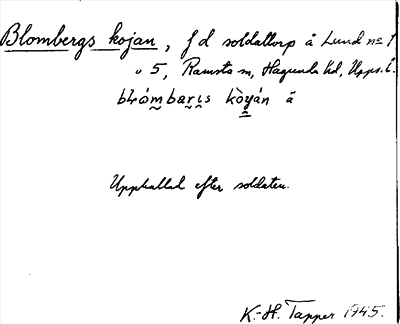 Blombergs kojan, f d soldattorp å Lund nº 1
o 5, Ramsta sn, Hagunda hd, Upps. l.
kòyán ä
Uppkallat efter soldaten.
K.-H. Tapper 1945.